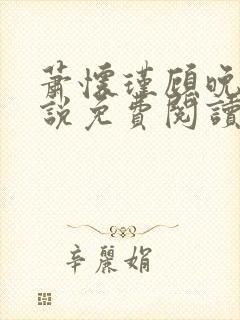 蕭懷瑾顧晚
說免費閱讀
辛麗娟